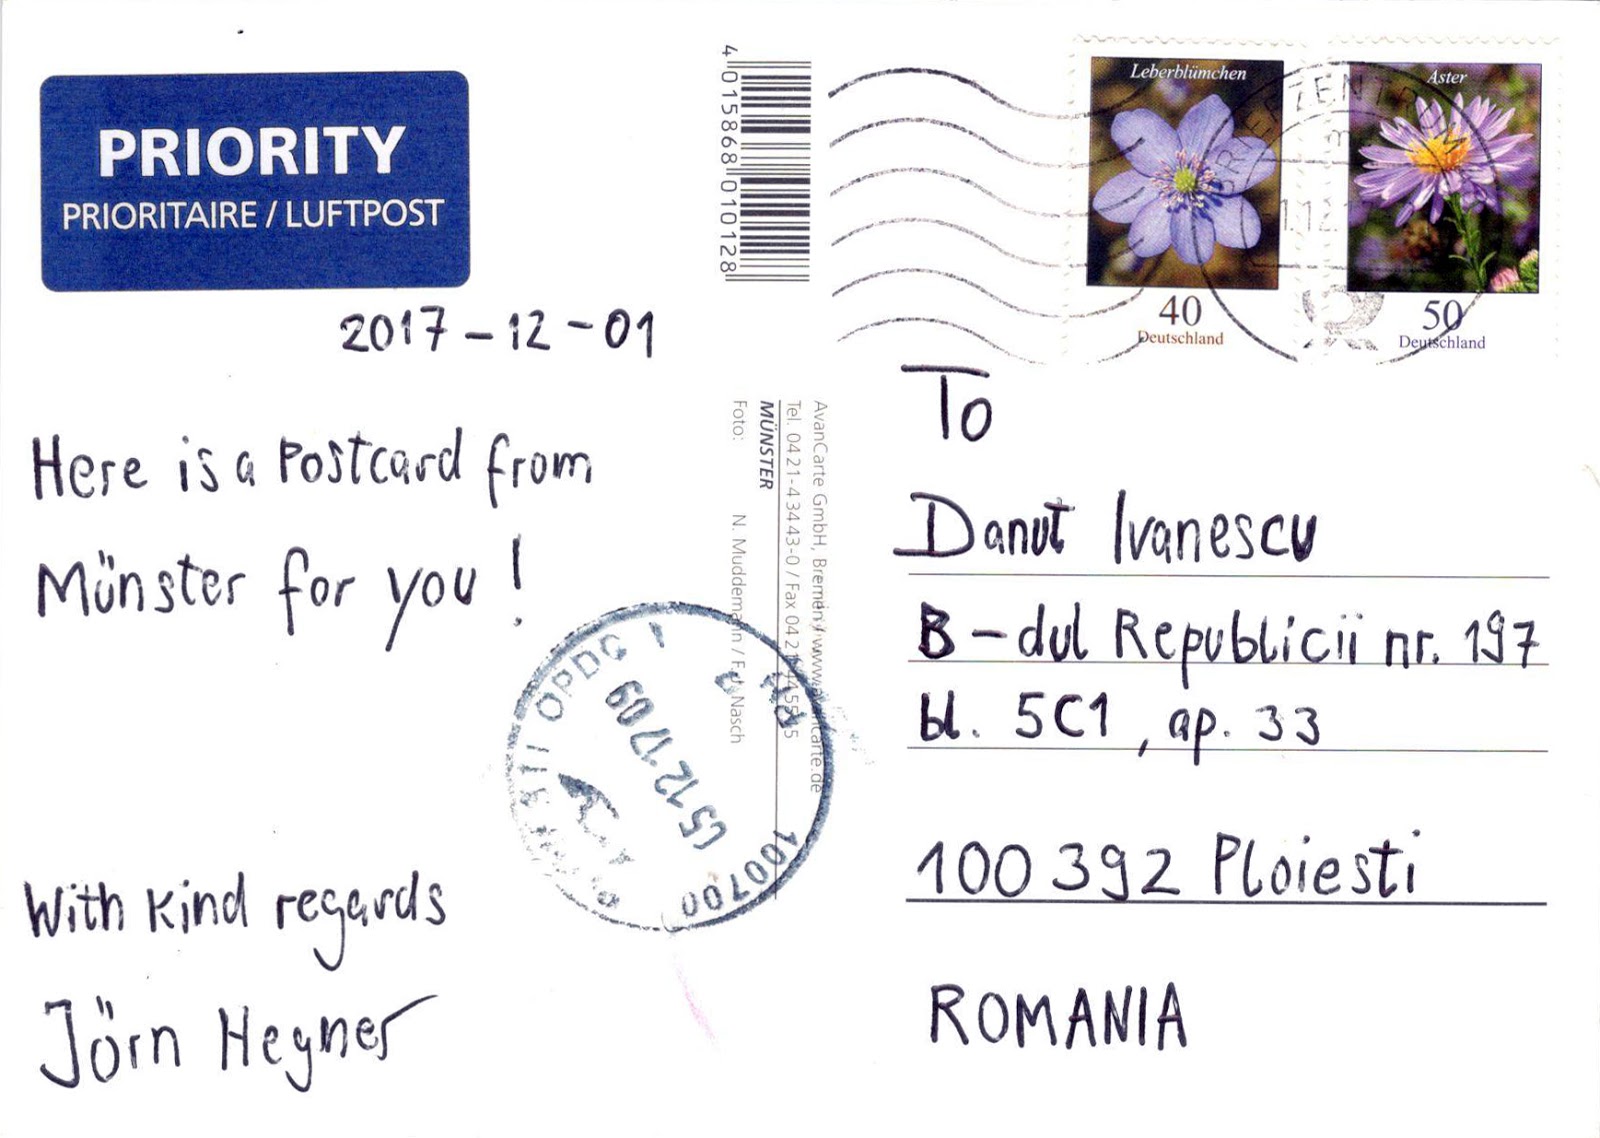 PRIORITY
PRIORITAIRE / LUFTPOST
2017-12-01
Here is a Postcard from
Münster for you!
With kind regards
Jörn Hegner
4 015868 010128
AvanCarte GmbH, Bremen / www.avancarte.de
Tel. 0421-43443-0 / Fax 0421
MÜNSTER
Foto: N. Muddemann / F. d. Nasch
OPDG 1
05 12 17 09
100700
Leberblümchen
40
Deutschland
Aster
50
Deutschland
BRIEFZENTRUM
To
Danut Ivanescu
B-dul Republicii nr. 197
bl. 5C1, ap. 33
100392 Ploiesti
ROMANIA